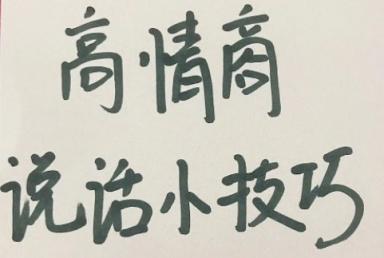 高情商
说话小技巧